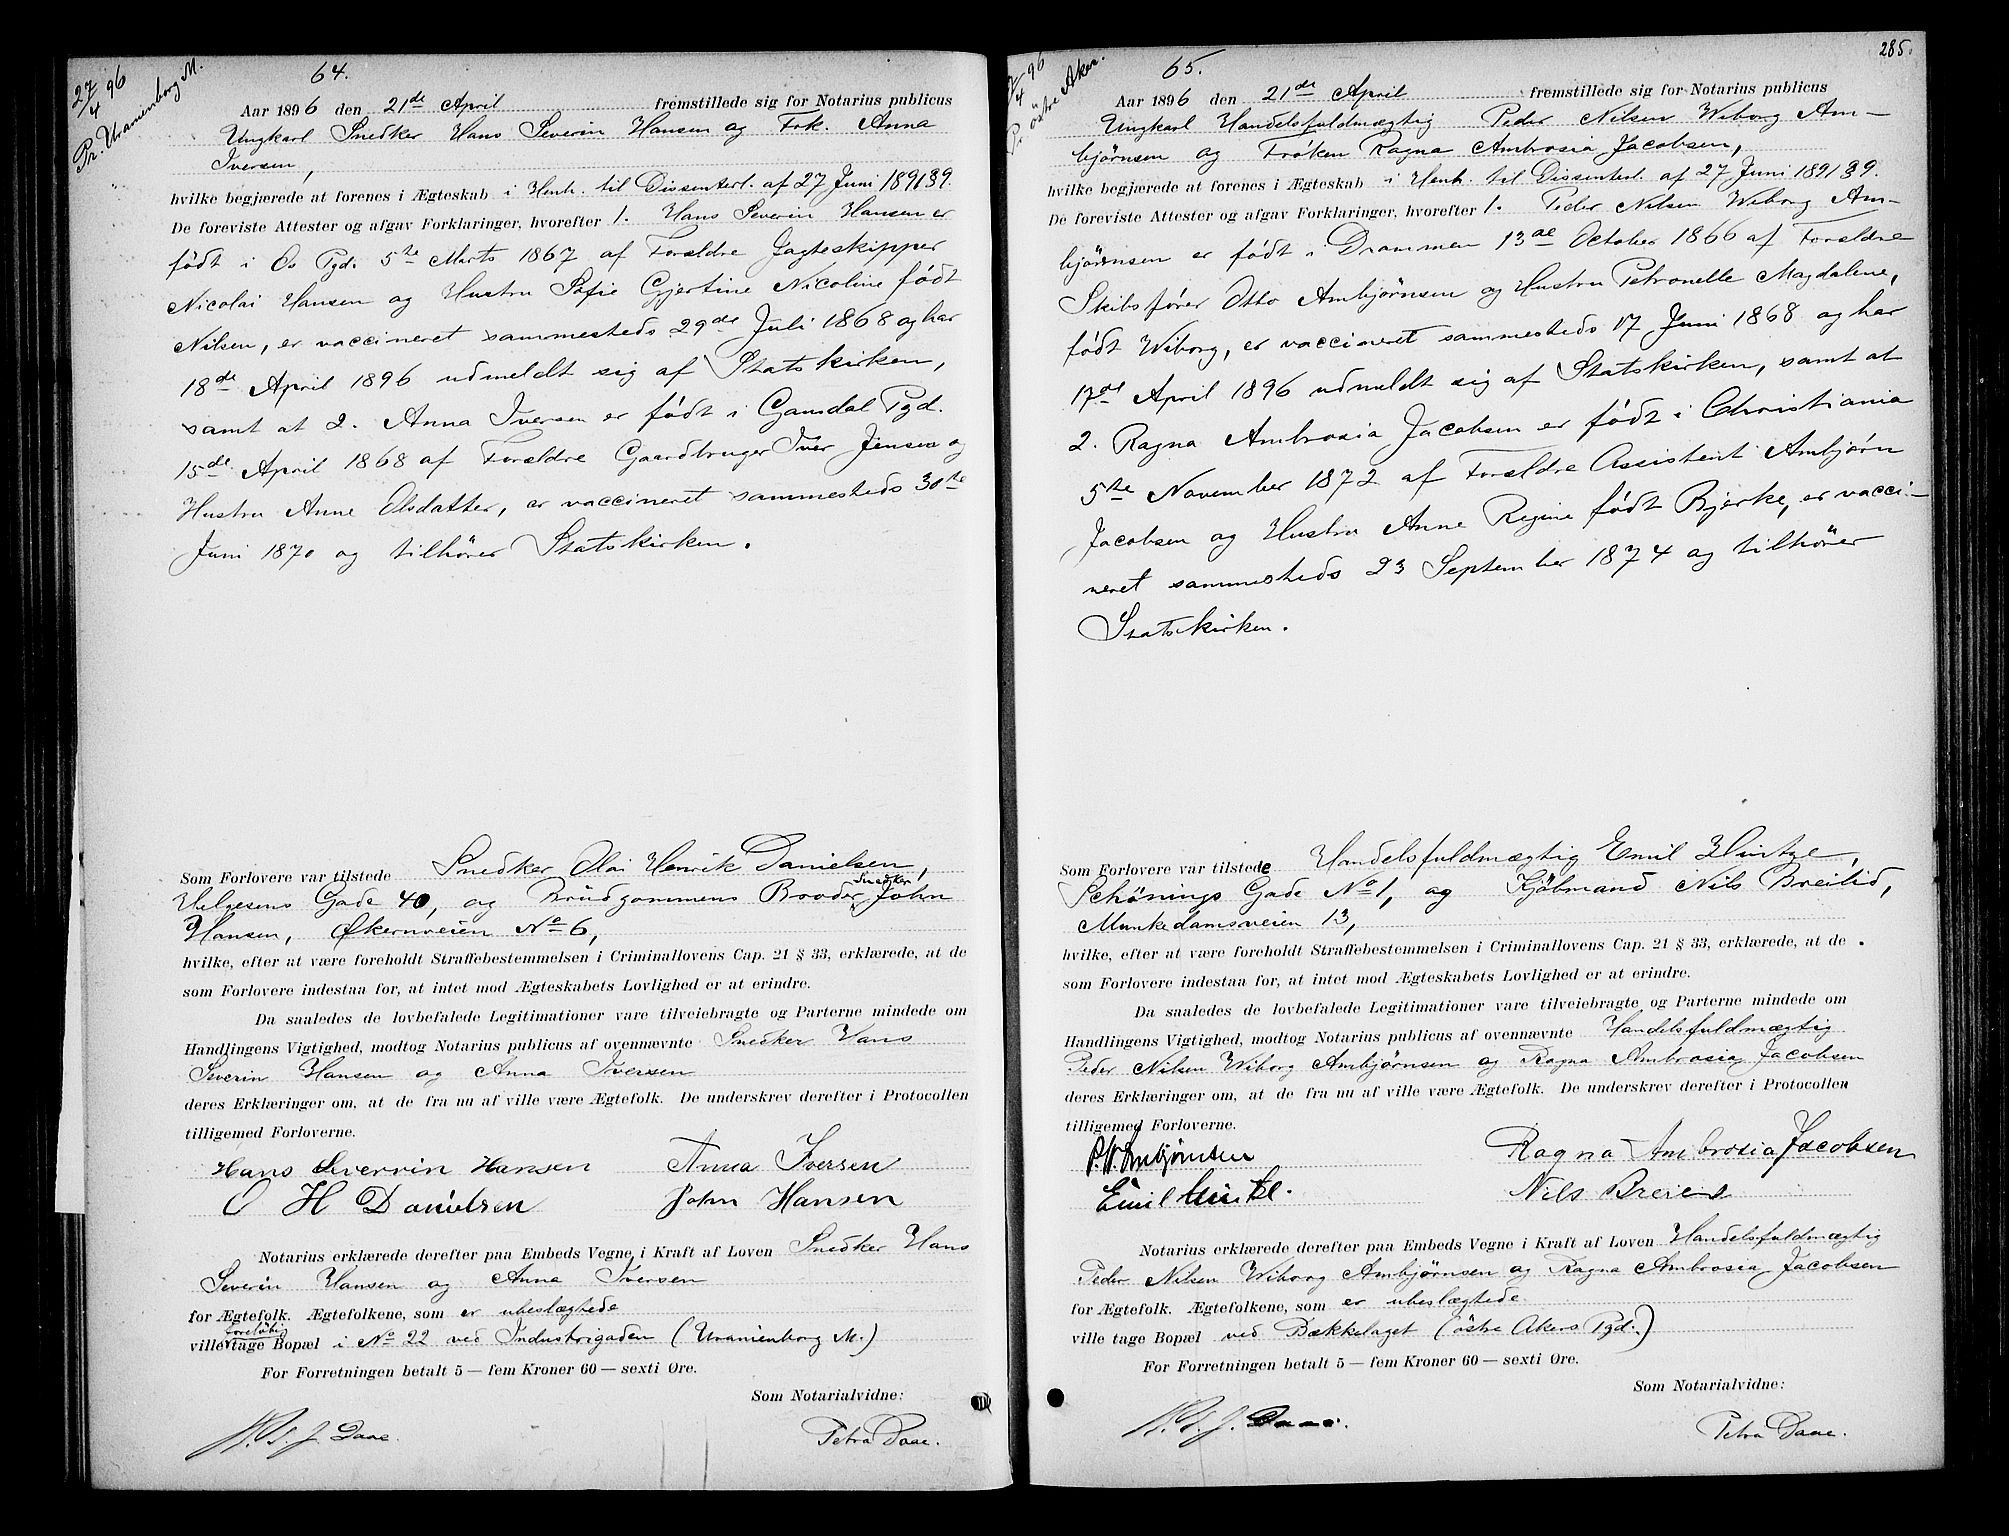 27/4 96
Pr. Uranienborg M.
64.
Aar 1896 den 21de April fremstillede sig for Notarius publicus
Ungkarl Snedker Hans Severin Hansen og Frk. Anna
Iversen,
hvilke begjærede at forenes i Ægteskab i Henh. til Dissenterl. af 27 Juni 1891 § 9.
De foreviste Attester og afgav Forklaringer, hvorefter 1. Hans Severin Hansen er
født i Os Pgd. 5te Marts 1867 af Forældre Jagteskipper
Nicolai Hansen og Hustru Sofie Gjertine Nicoline født
Nilsen, er vaccineret sammesteds 29de Juli 1868 og har
18de April 1896 udmeldt sig af Statskirken,
samt at 2. Anna Iversen er født i Gausdal Pgd.
15de April 1868 af Forældre Gaardbruger Iver Jensen og
Hustru Anne Olsdatter, er vaccineret sammesteds 30te
Juni 1870 og tilhører Statskirken.
Som Forlovere var tilstede Snedker Olai Henrik Danielsen,
Helgesens Gade 40, og Brudgommens Broder, Snedker John
Hansen, Økernveien No 6,
hvilke, efter at være foreholdt Straffebestemmelsen i Criminallovens Cap. 21 § 33, erklærede, at de
som Forlovere indestaa for, at intet mod Ægteskabets Lovlighed er at erindre.
Da saaledes de lovbefalede Legitimationer vare tilveiebragte og Parterne mindede om
Handlingens Vigtighed, modtog Notarius publicus af ovennævnte Snedker Hans
Severin Hansen og Anna Iversen
deres Erklæringer om, at de fra nu af ville være Ægtefolk. De underskrev derefter i Protocollen
tilligemed Forloverne.
Hans Severrin Hansen Anna Iversen
O H Danielsen John Hansen
Notarius erklærede derefter paa Embeds Vegne i Kraft af Loven Snedker Hans
Severin Hansen og Anna Iversen
for Ægtefolk. Ægtefolkene, som er ubeslægtede
ville foreløbig tage Bopæl i No 22 ved Industrigaden (Uranienborg M.)
For Forretningen betalt 5 — fem Kroner 60 — sexti Øre.
Som Notarialvidne:
Daae. Petra Daae.
285.
4 96
P. østre Aker.
65.
Aar 1896 den 21de April fremstillede sig for Notarius publicus
Ungkarl Handelsfuldmægtig Peder Nilsen Wiborg Am-
bjørnsen og Frøken Ragna Ambrosia Jacobsen,
hvilke begjærede at forenes i Ægteskab i Henh. til Dissenterl. af 27 Juni 1891 § 9.
De foreviste Attester og afgav Forklaringer, hvorefter 1. Peder Nilsen Wiborg Am-
bjørnsen er født i Drammen 13de October 1866 af Forældre
Skibsfører Otto Ambjørnsen og Hustru Petronelle Magdalene,
født Wiborg, er vaccineret sammesteds 17 Juni 1868 og har
17de April 1896 udmeldt sig af Statskirken, samt at
2. Ragna Ambrosia Jacobsen er født i Christiania
5te November 1872 af Forældre Assistent Ambjørn
Jacobsen og Hustru Anne Regine født Bjerke, er vacci-
neret sammesteds 23 September 1874 og tilhører
Statskirken.
Som Forlovere var tilstede Handelsfuldmægtig Emil Hintze,
Schønings Gade No 1, og Kjøbmand Nils Breilid,
Munkedamsveien 13,
hvilke, efter at være foreholdt Straffebestemmelsen i Criminallovens Cap. 21 § 33, erklærede, at de
som Forlovere indestaa for, at intet mod Ægteskabets Lovlighed er at erindre.
Da saaledes de lovbefalede Legitimationer vare tilveiebragte og Parterne mindede om
Handlingens Vigtighed, modtog Notarius publicus af ovennævnte Handelsfuldmægtig
Peder Nilsen Wiborg Ambjørnsen og Ragna Ambrosia Jacobsen
deres Erklæringer om, at de fra nu af ville være Ægtefolk. De underskrev derefter i Protocollen
tilligemed Forloverne.
Ambjørnsen Ragna Ambrosia Jacobsen
Emil Nils
Notarius erklærede derefter paa Embeds Vegne i Kraft af Loven Handelsfuldmægtig
Peder Nilsen Wiborg Ambjørnsen og Ragna Ambrosia Jacobsen
for Ægtefolk. Ægtefolkene, som er ubeslægtede
ville tage Bopæl ved Bækkelaget (østre Akers Pgd.)
For Forretningen betalt 5 — fem Kroner 60 — sexti Øre.
Som Notarialvidne:
Daae. Petra Daae.